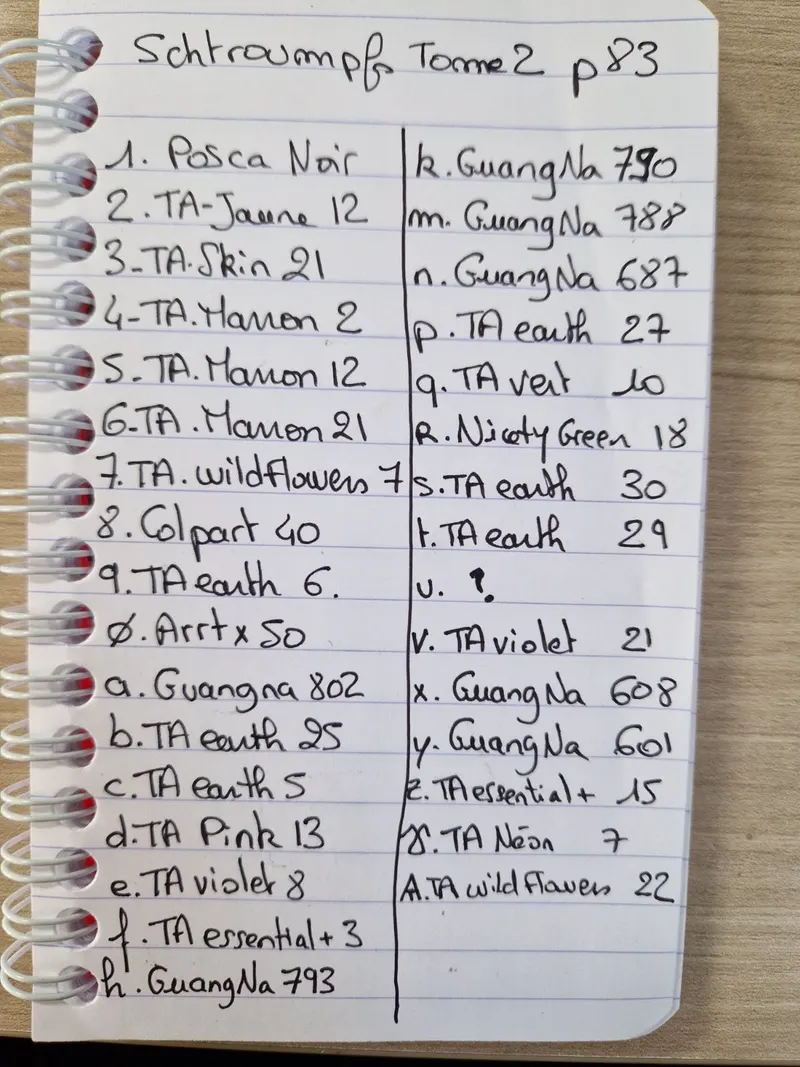 Schtroumpfs Tome 2 p83
1. Posca Noir
2. TA-Jaune 12
3-TA.Skin 21
4-TA.Manon 2
5-TA.Manon 12
6-TA.Manon 21
7.TA.wildflowers 7
8.Colpart 40
9.TA earth 6.
Ø.Arrtx 50
a.Guangna 802
b.TA earth 25
c.TA earth 5
d.TA Pink 13
e.TA violet 8
f.TA essential+ 3
h.GuangNa 793
k.GuangNa 790
m.GuangNa 788
n.GuangNa 687
p.TA earth 27
q.TA vert 10
R.Nicety Green 18
s.TA earth 30
t.TA earth 29
u. ?
v.TA violet 21
x.GuangNa 608
y.GuangNa 601
z.TA essential+ 15
TA Néon 7
A.TA wildflowers 22